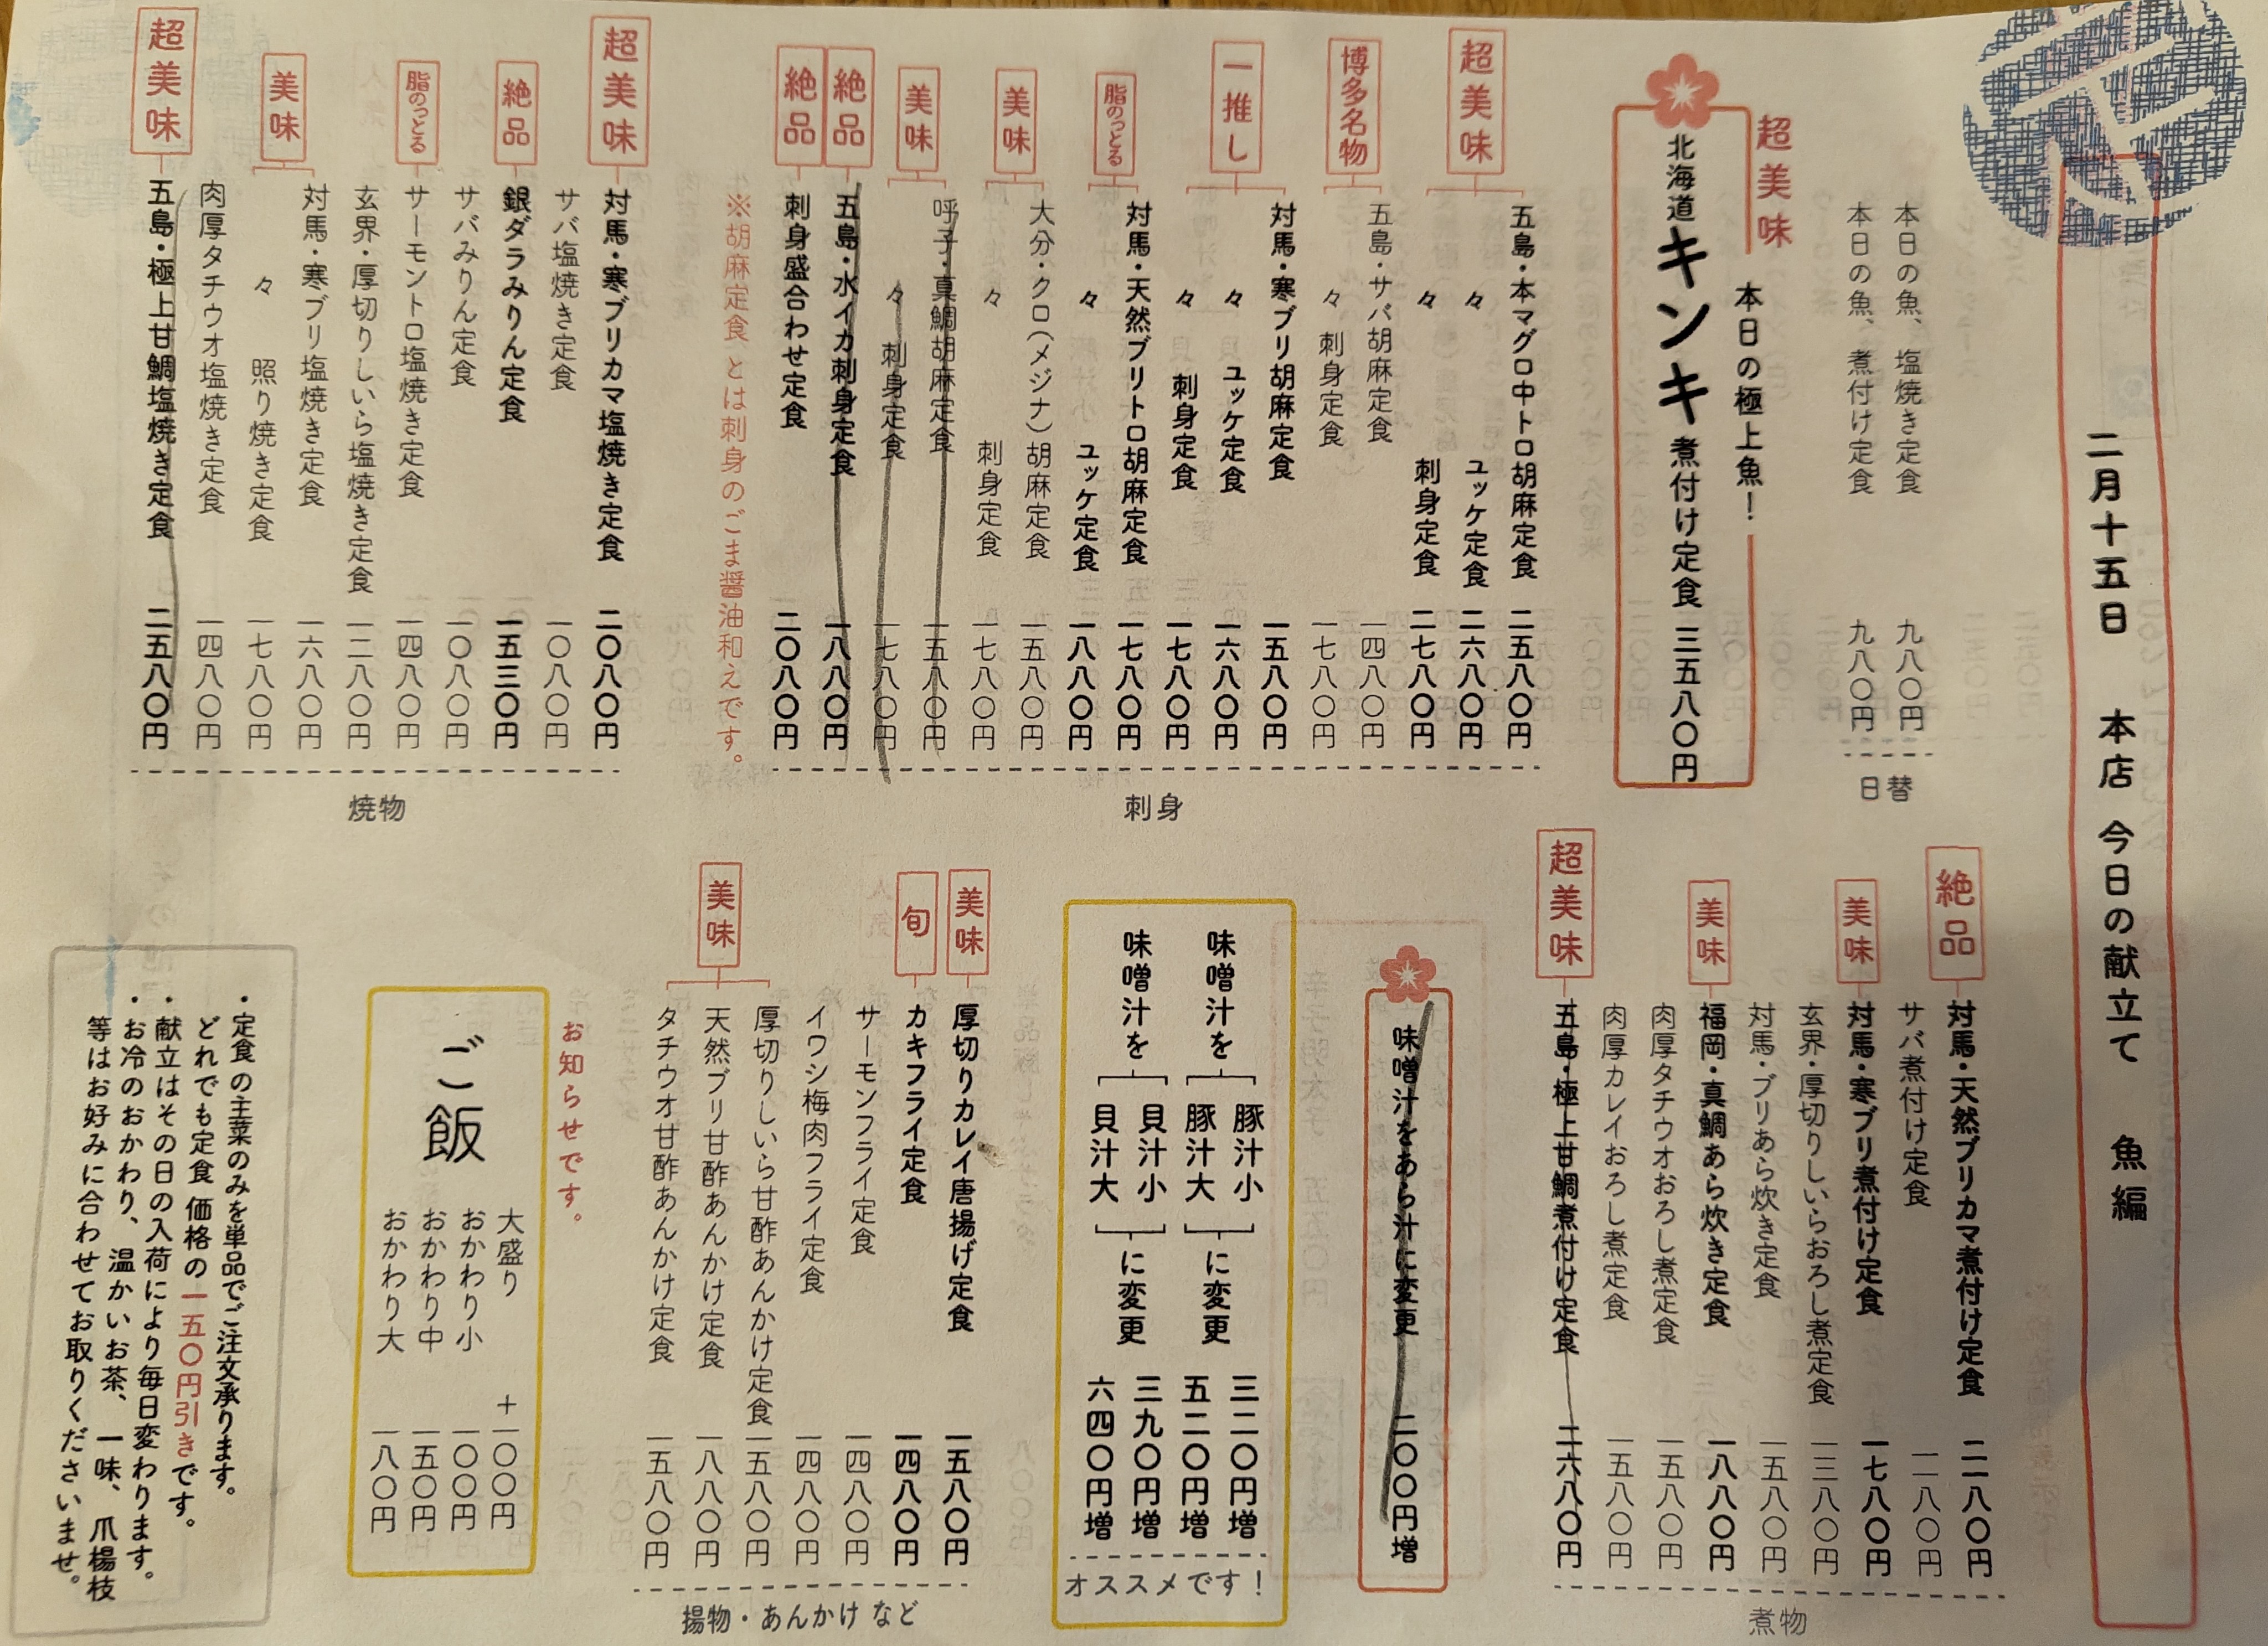 二月十五日 本店 今日の献立て 魚編
本日の魚、塩焼き定食 九八〇円
本日の魚、煮付け定食 九八〇円
日替
超美味
本日の極上魚!
北海道キンキ煮付け定食 三五八〇円
超美味
五島・本マグロ中トロ胡麻定食 二五八〇円
々 ユッケ定食 二六八〇円
々 刺身定食 二七八〇円
博多名物
五島・サバ胡麻定食 一四八〇円
々 刺身定食 一七八〇円
一推し
対馬・寒ブリ胡麻定食 一五八〇円
々 ユッケ定食 一六八〇円
々 刺身定食 一七八〇円
脂のっとる
対馬・天然ブリトロ胡麻定食 一七八〇円
々 ユッケ定食 一八八〇円
美味
大分・クロ(メジナ)胡麻定食 一五八〇円
々 刺身定食 一七八〇円
美味
呼子・真鯛胡麻定食 一五八〇円
々 刺身定食 一七八〇円
絶品
五島・水イカ刺身定食 一八八〇円
絶品
刺身盛合わせ定食 二〇八〇円
※胡麻定食とは刺身のごま醤油和えです。
刺身
超美味
対馬・寒ブリカマ塩焼き定食 二〇八〇円
サバ塩焼き定食 一〇八〇円
絶品
銀ダラみりん定食 一五三〇円
サバみりん定食 一〇八〇円
脂のっとる
サーモントロ塩焼き定食 一四八〇円
玄界・厚切りしいら塩焼き定食 一二八〇円
美味
対馬・寒ブリ塩焼き定食 一六八〇円
々 照り焼き定食 一七八〇円
肉厚タチウオ塩焼き定食 一四八〇円
超美味
五島・極上甘鯛塩焼き定食 二五八〇円
焼物
絶品
対馬・天然ブリカマ煮付け定食 二一八〇円
サバ煮付け定食 一一八〇円
美味
対馬・寒ブリ煮付け定食 一七八〇円
玄界・厚切りしいらおろし煮定食 一三八〇円
対馬・ブリあら炊き定食 一五八〇円
美味
福岡・真鯛あら炊き定食 一八八〇円
肉厚タチウオおろし煮定食 一五八〇円
肉厚カレイおろし煮定食 一五八〇円
超美味
五島・極上甘鯛煮付け定食 二六八〇円
煮物
味噌汁をあら汁に変更 二〇〇円増
味噌汁を 豚汁小 に変更 三二〇円増
豚汁大 五二〇円増
味噌汁を 貝汁小 に変更 三九〇円増
貝汁大 六四〇円増
オススメです!
美味
厚切りカレイ唐揚げ定食 一五八〇円
旬
カキフライ定食 一四八〇円
サーモンフライ定食 一四八〇円
イワシ梅肉フライ定食 一四八〇円
美味
厚切りしいら甘酢あんかけ定食 一五八〇円
天然ブリ甘酢あんかけ定食 一八八〇円
タチウオ甘酢あんかけ定食 一五八〇円
揚物・あんかけ など
お知らせです。
ご飯
大盛り +一〇〇円
おかわり小 一〇〇円
おかわり中 一五〇円
おかわり大 一八〇円
・定食の主菜のみを単品でご注文承ります。
どれでも定食価格の一五〇円引きです。
・献立はその日の入荷により毎日変わります。
・お冷のおかわり、温かいお茶、一味、爪楊枝
等はお好みに合わせてお取りくださいませ。